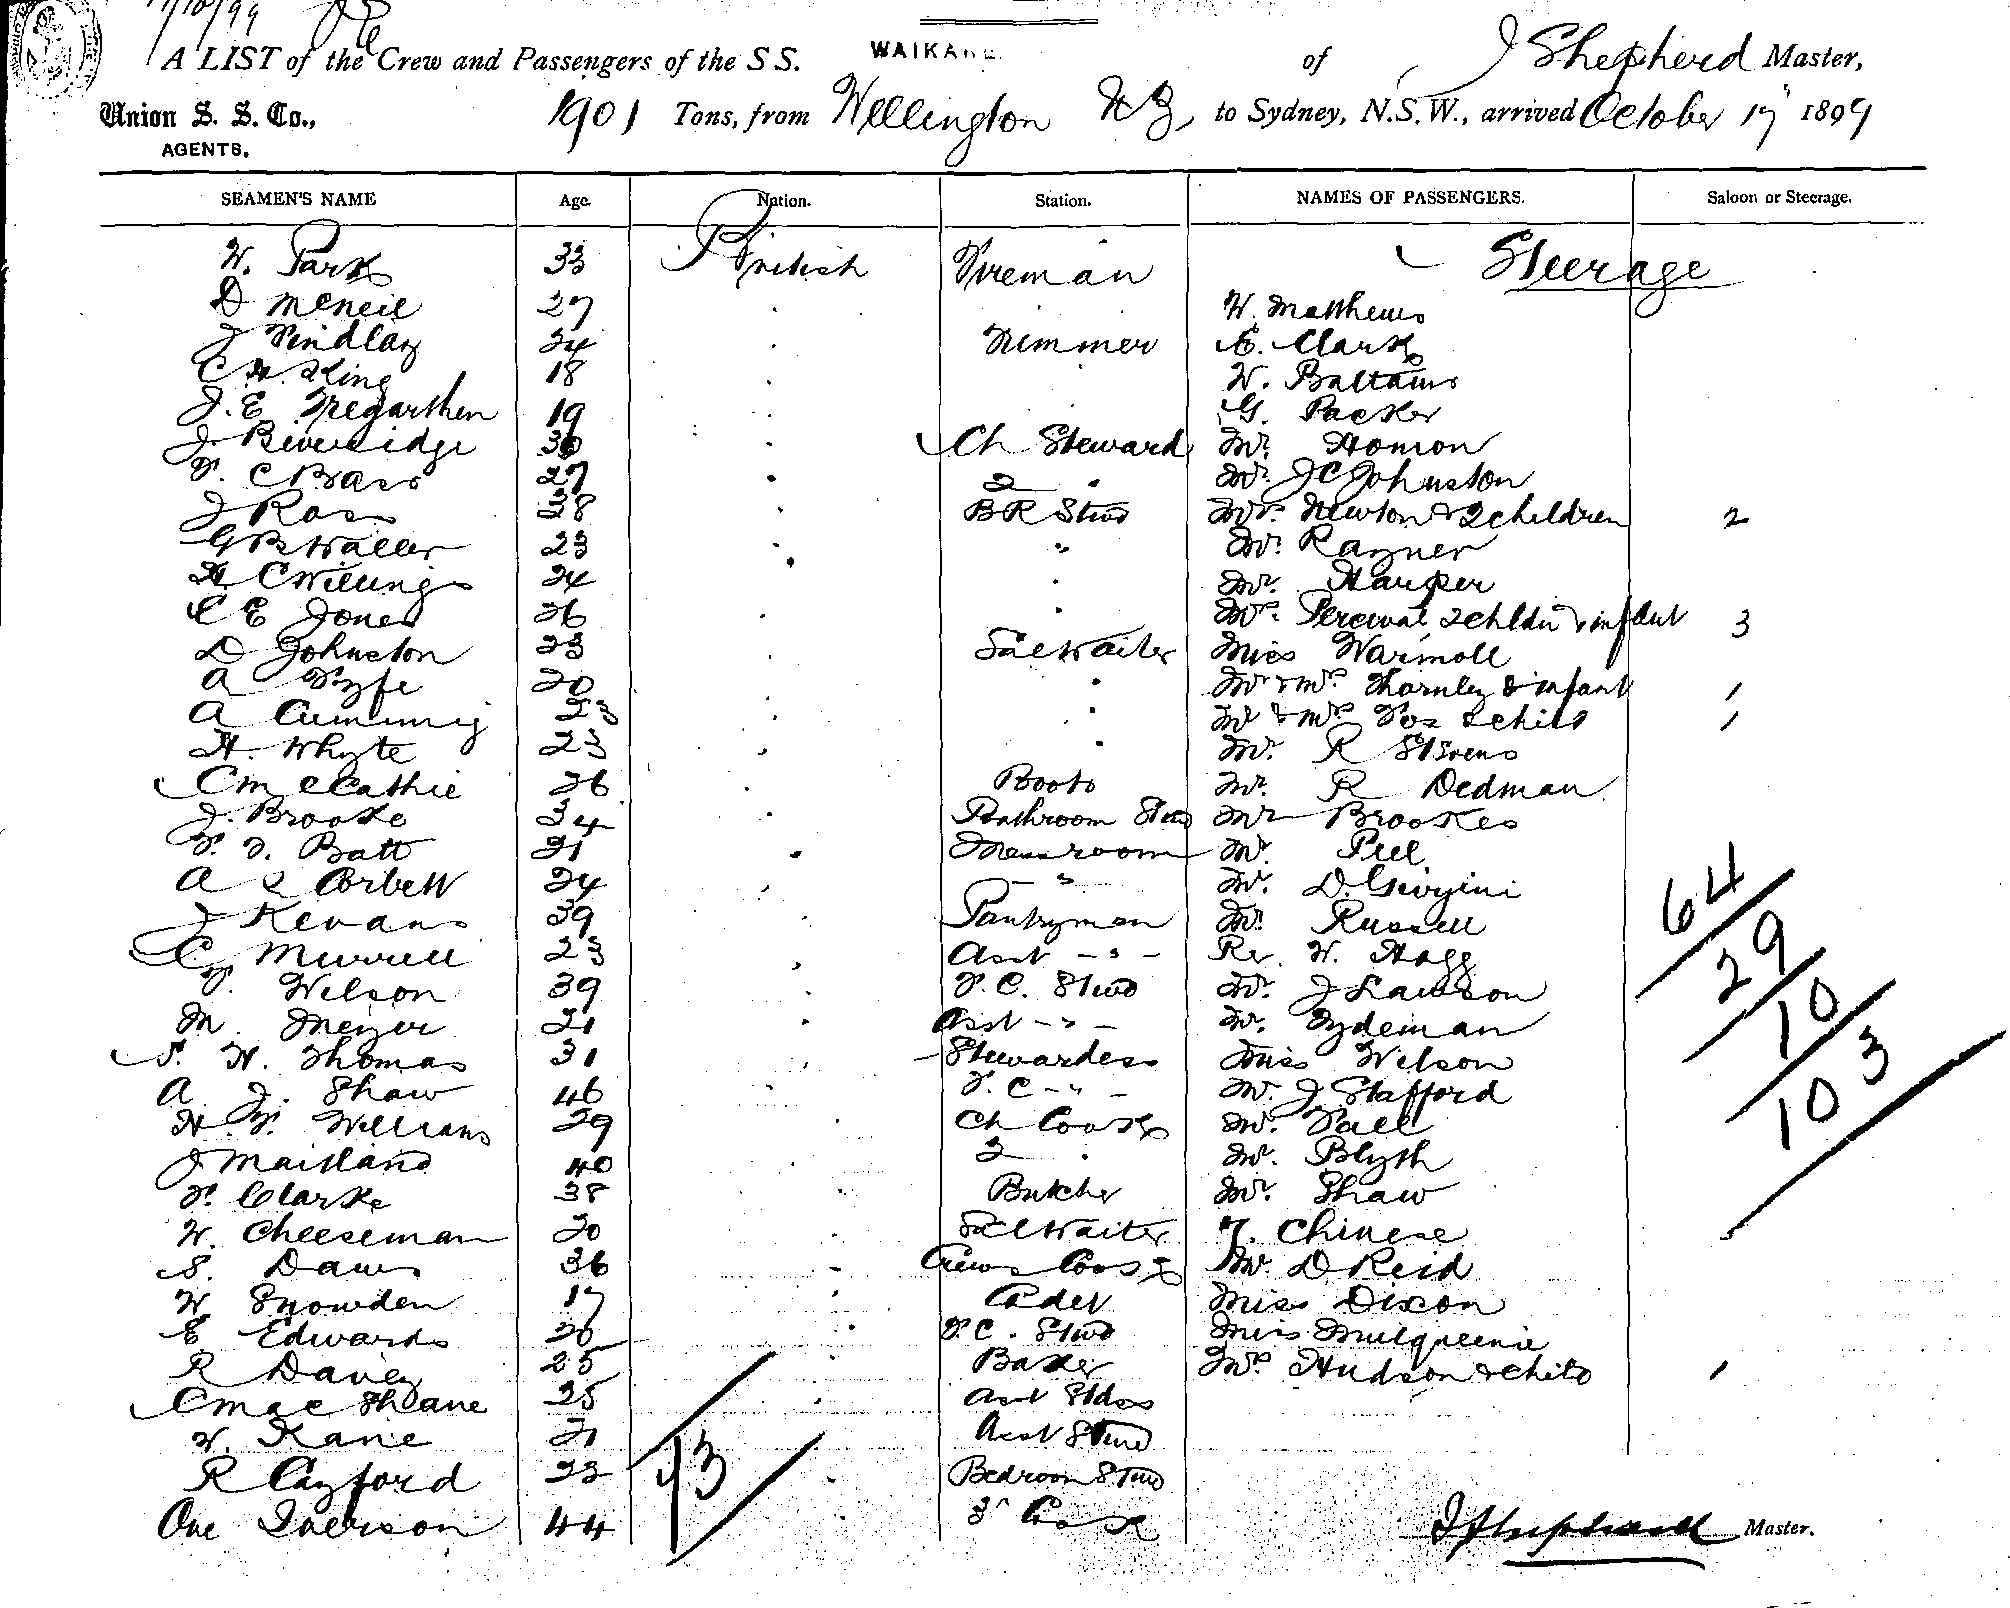 17/10/99
A LIST of the Crew and Passengers of the S S. WAIKARE of J Shepherd Master,
Union S. S. Co., 1901 Tons, from Wellington N Z, to Sydney, N.S.W., arrived October 17 1899
AGENTS.
SEAMEN'S NAME Age. Nation. Station. NAMES OF PASSENGERS. Saloon or Steerage.
W. Park 33 British Fireman Steerage
D McNeil 27 W. Matthews
J Findlay 24 Trimmer E. Clark
C H. King 18 W. Battams
J. E Tregarthen 19 G. Packer
J. Beveridge 36 Ch Steward Mr. Homon
F. C Brass 27 2 " Mr. J C Johnston
J Ross 38 B R Stwd Mrs. Newton & 2 children 2
G B Waller 23 " Mr. Rayner
H C Willings 24 " Mr. Harper
C E Jones 26 " Mrs. Percival, 2 chldn & infant 3
D Johnston 23 Sal Waiter Miss Warmoll
A Fyfe 20 " Mr & Mrs Thornley & infant 1
A Cumming 23 " Mr & Mrs Fox & child 1
H. Whyte 23 " Mr. R Stivens
C McCathie 26 Boots Mr. R Dedman
J. Brooke 34 Bathroom Stwd Mr Brookes
F. J. Batt 21 Messroom Mr. Peel
A L Corbett 24 " Mr. D.
J Kevans 39 Pantryman Mr. Russell
C Murrell 23 Asst - " - Rev. W. Hogg
F. Wilson 39 F. C. Stwd Mr. J Lawson
M. Meyer 21 Asst - " - Mr. Tydeman
S. W. Thomas 31 Stewardess Miss Wilson
A. J. Shaw 46 F. C - " - Mr. J Stafford
H. F. Williams 29 Ch Cook Mr. Vall
J Maitland 40 2 " Mr. Blyth
F. Clarke 38 Butcher Mr. Shaw
W. Cheeseman 20 Sal Waiter 7. Chinese
S. Dawes 36 Crews Cook Mr. D Reid
W Snowden 17 Cadet Miss Dixon
E Edwards 26 F. C. Stwd Miss Mulqueenie
R Davey 25 Baker Mrs Hudson & child 1
C MacShane 25 Asst Stdss
W. Kane 21 Asst Stwd
R Cayford 23 Bedroom Stwd
Ove Iverson 44 3rd Cook
64
29
10
103
73
J Shepherd Master.